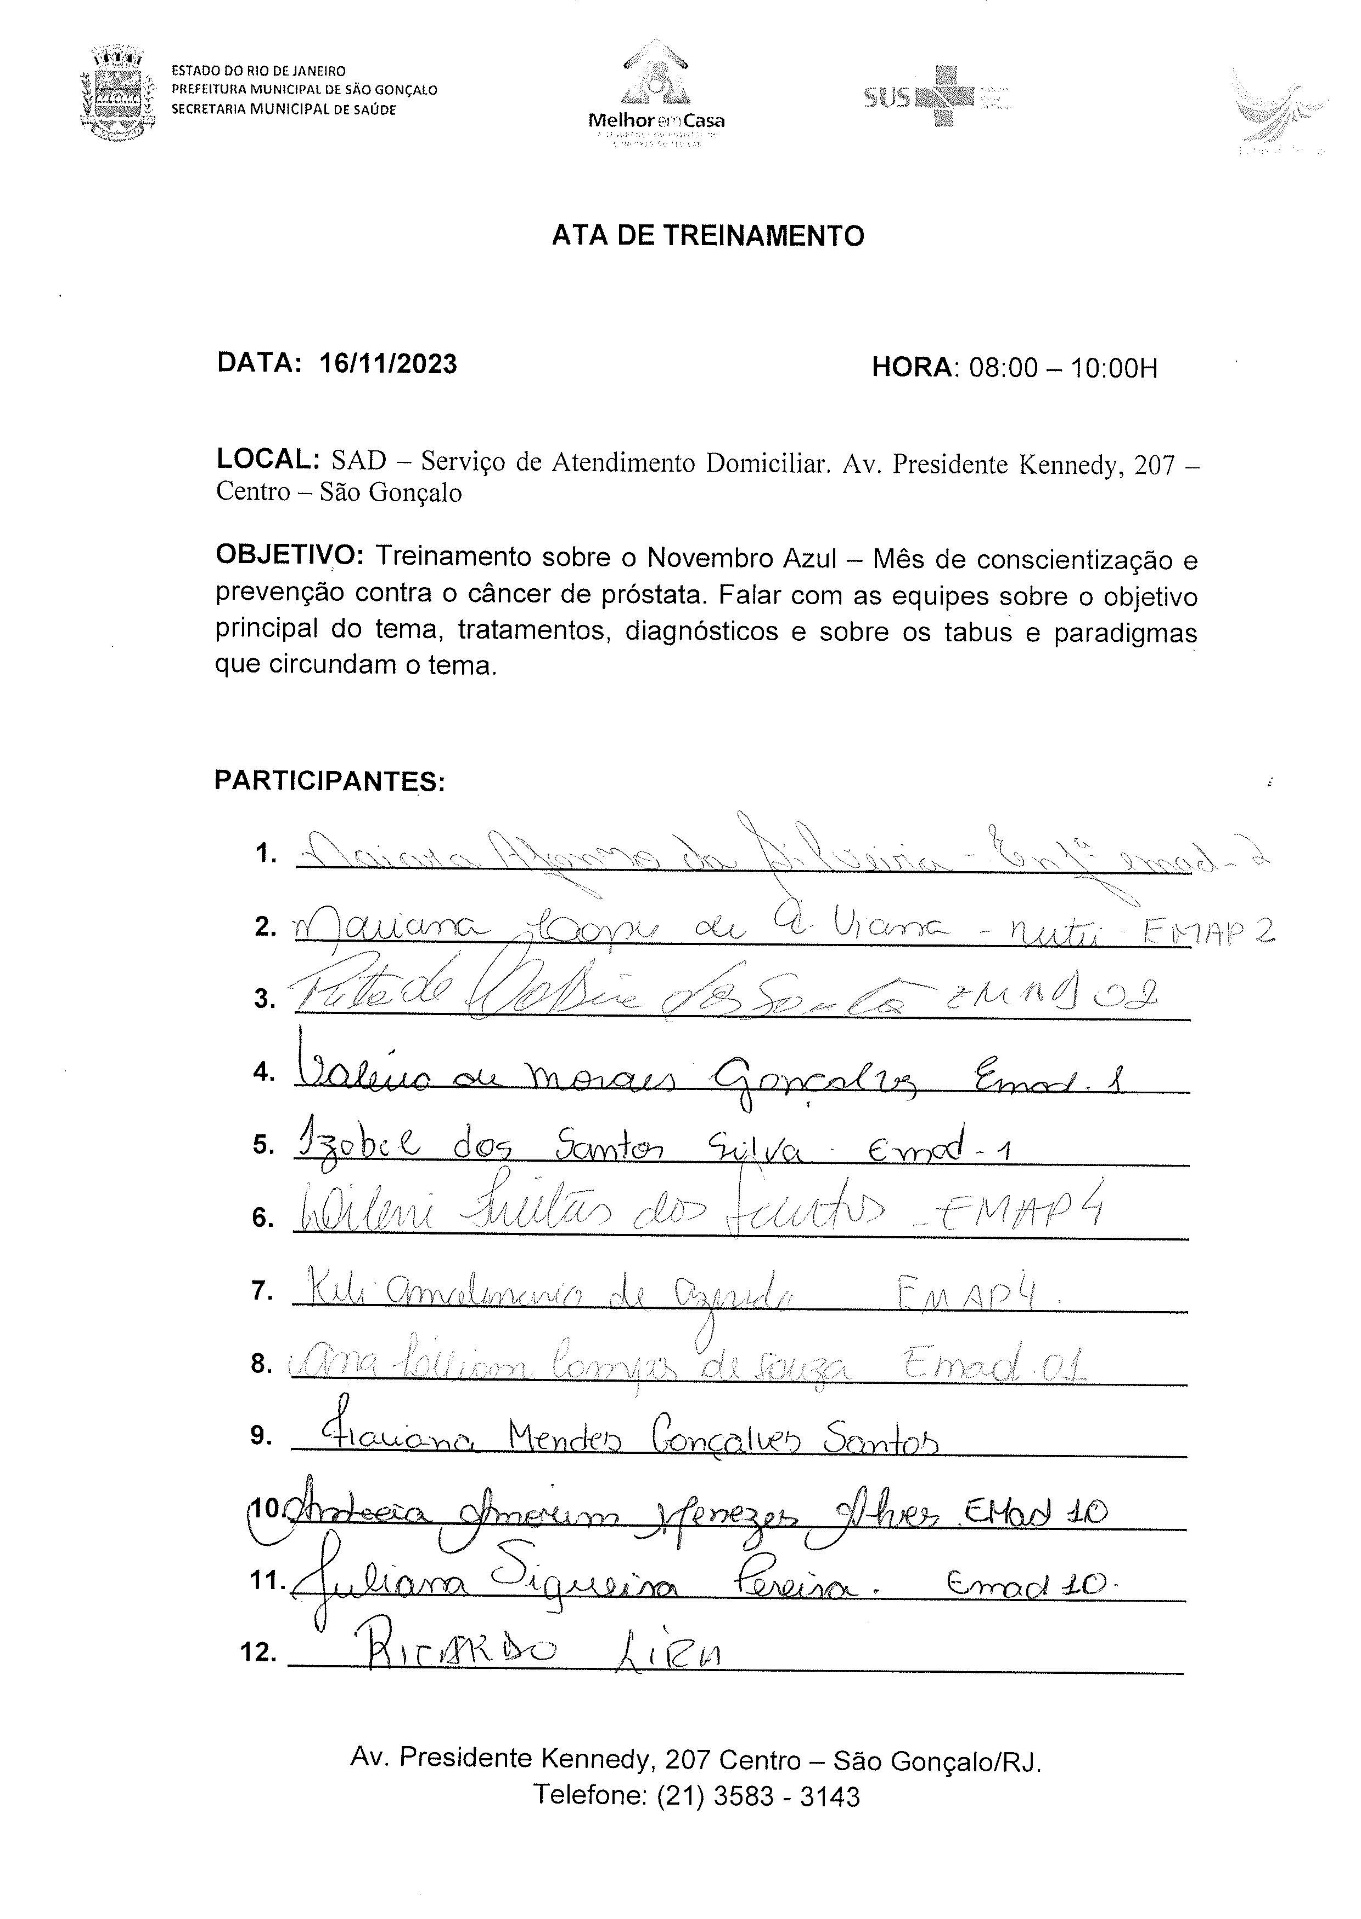 ESTADO DO RIO DE JANEIRO
PREFEITURA MUNICIPAL DE SÃO GONÇALO
SECRETARIA MUNICIPAL DE SAÚDE
Melhor em Casa
SUS
ATA DE TREINAMENTO
DATA: 16/11/2023 HORA: 08:00 – 10:00H
LOCAL: SAD – Serviço de Atendimento Domiciliar. Av. Presidente Kennedy, 207 –
Centro – São Gonçalo
OBJETIVO: Treinamento sobre o Novembro Azul – Mês de conscientização e
prevenção contra o câncer de próstata. Falar com as equipes sobre o objetivo
principal do tema, tratamentos, diagnósticos e sobre os tabus e paradigmas
que circundam o tema.
PARTICIPANTES:
1. Naiara Afonso da Silveira - Enfª emad-2
2. Mariana de A. Viana - nutri EMAP 2
3. Rita de dos EMAD 02
4. Valéria de Moraes Gonçalves Emad. 1
5. Izabel dos Santos Silva - Emad - 1
6. Freitas dos Santos - EMAP 4
7. de Azeredo EMAP4.
8. Ana Campos de Souza Emad. 01
9. Mendes Gonçalves Santos
10. Menezes Alves EMad 10
11. Juliana Siqueira Pereira. Emad 10.
12. RICARDO LIRA
Av. Presidente Kennedy, 207 Centro – São Gonçalo/RJ.
Telefone: (21) 3583 - 3143